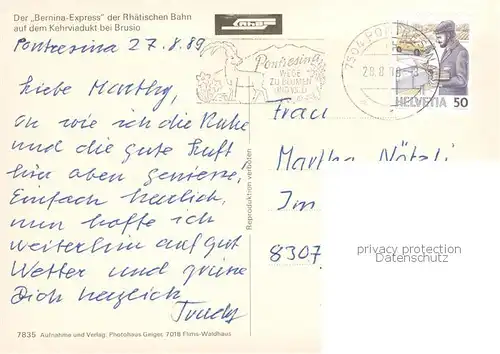 Der „Bernina-Express" der Rhätischen Bahn
auf dem Kehrviadukt bei Brusio
Pontresina 27.8.89
Liebe Marthy,
oh wie ich die Ruhe
und die gute Luft
hier oben geniesse.
Einfach herrlich,
nun hoffe ich
weiterhin auf gut
Wetter und grüsse
Dich herzlich
Trudy
7835 Aufnahme und Verlag: Photohaus Geiger, 7018 Flims-Waldhaus
Reproduktion verboten
Pontresina
WEGE
ZU BLUMEN
UND WILD
7504 PONTRESINA
28.8.
HELVETIA 50
Frau
Martha Nötzli
Im
8307
privacy protection
DARMERLAU